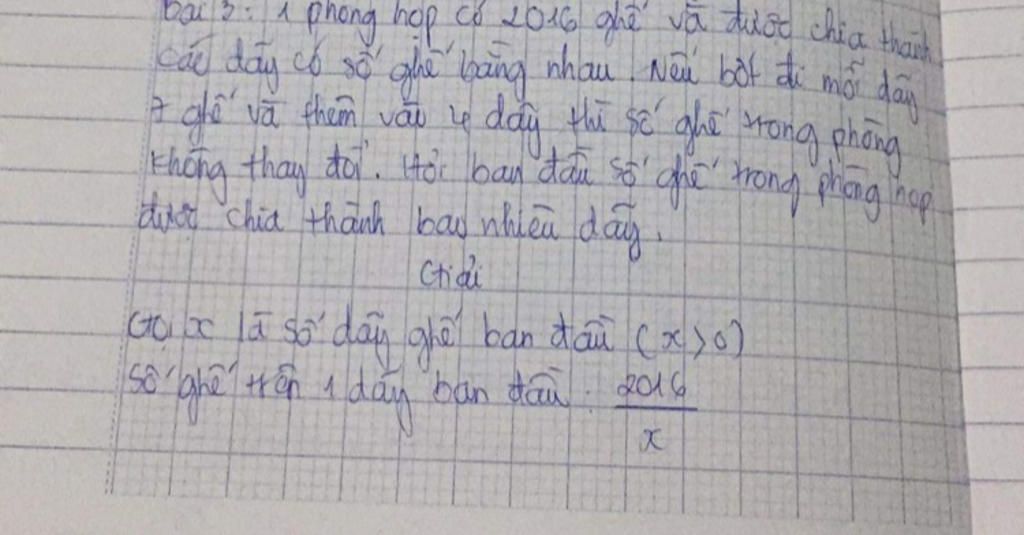 bài 3: 1 phòng họp có 2016 ghế và được chia thành
các dãy có số ghế bằng nhau. Nếu bớt đi mỗi dãy
7 ghế và thêm vào 4 dãy thì số ghế trong phòng
không thay đổi. Hỏi ban đầu số ghế trong phòng họp
được chia thành bao nhiêu dãy.
Giải
Gọi x là số dãy ghế ban đầu (x>0)
Số ghế trên 1 dãy ban đầu: 2016
x